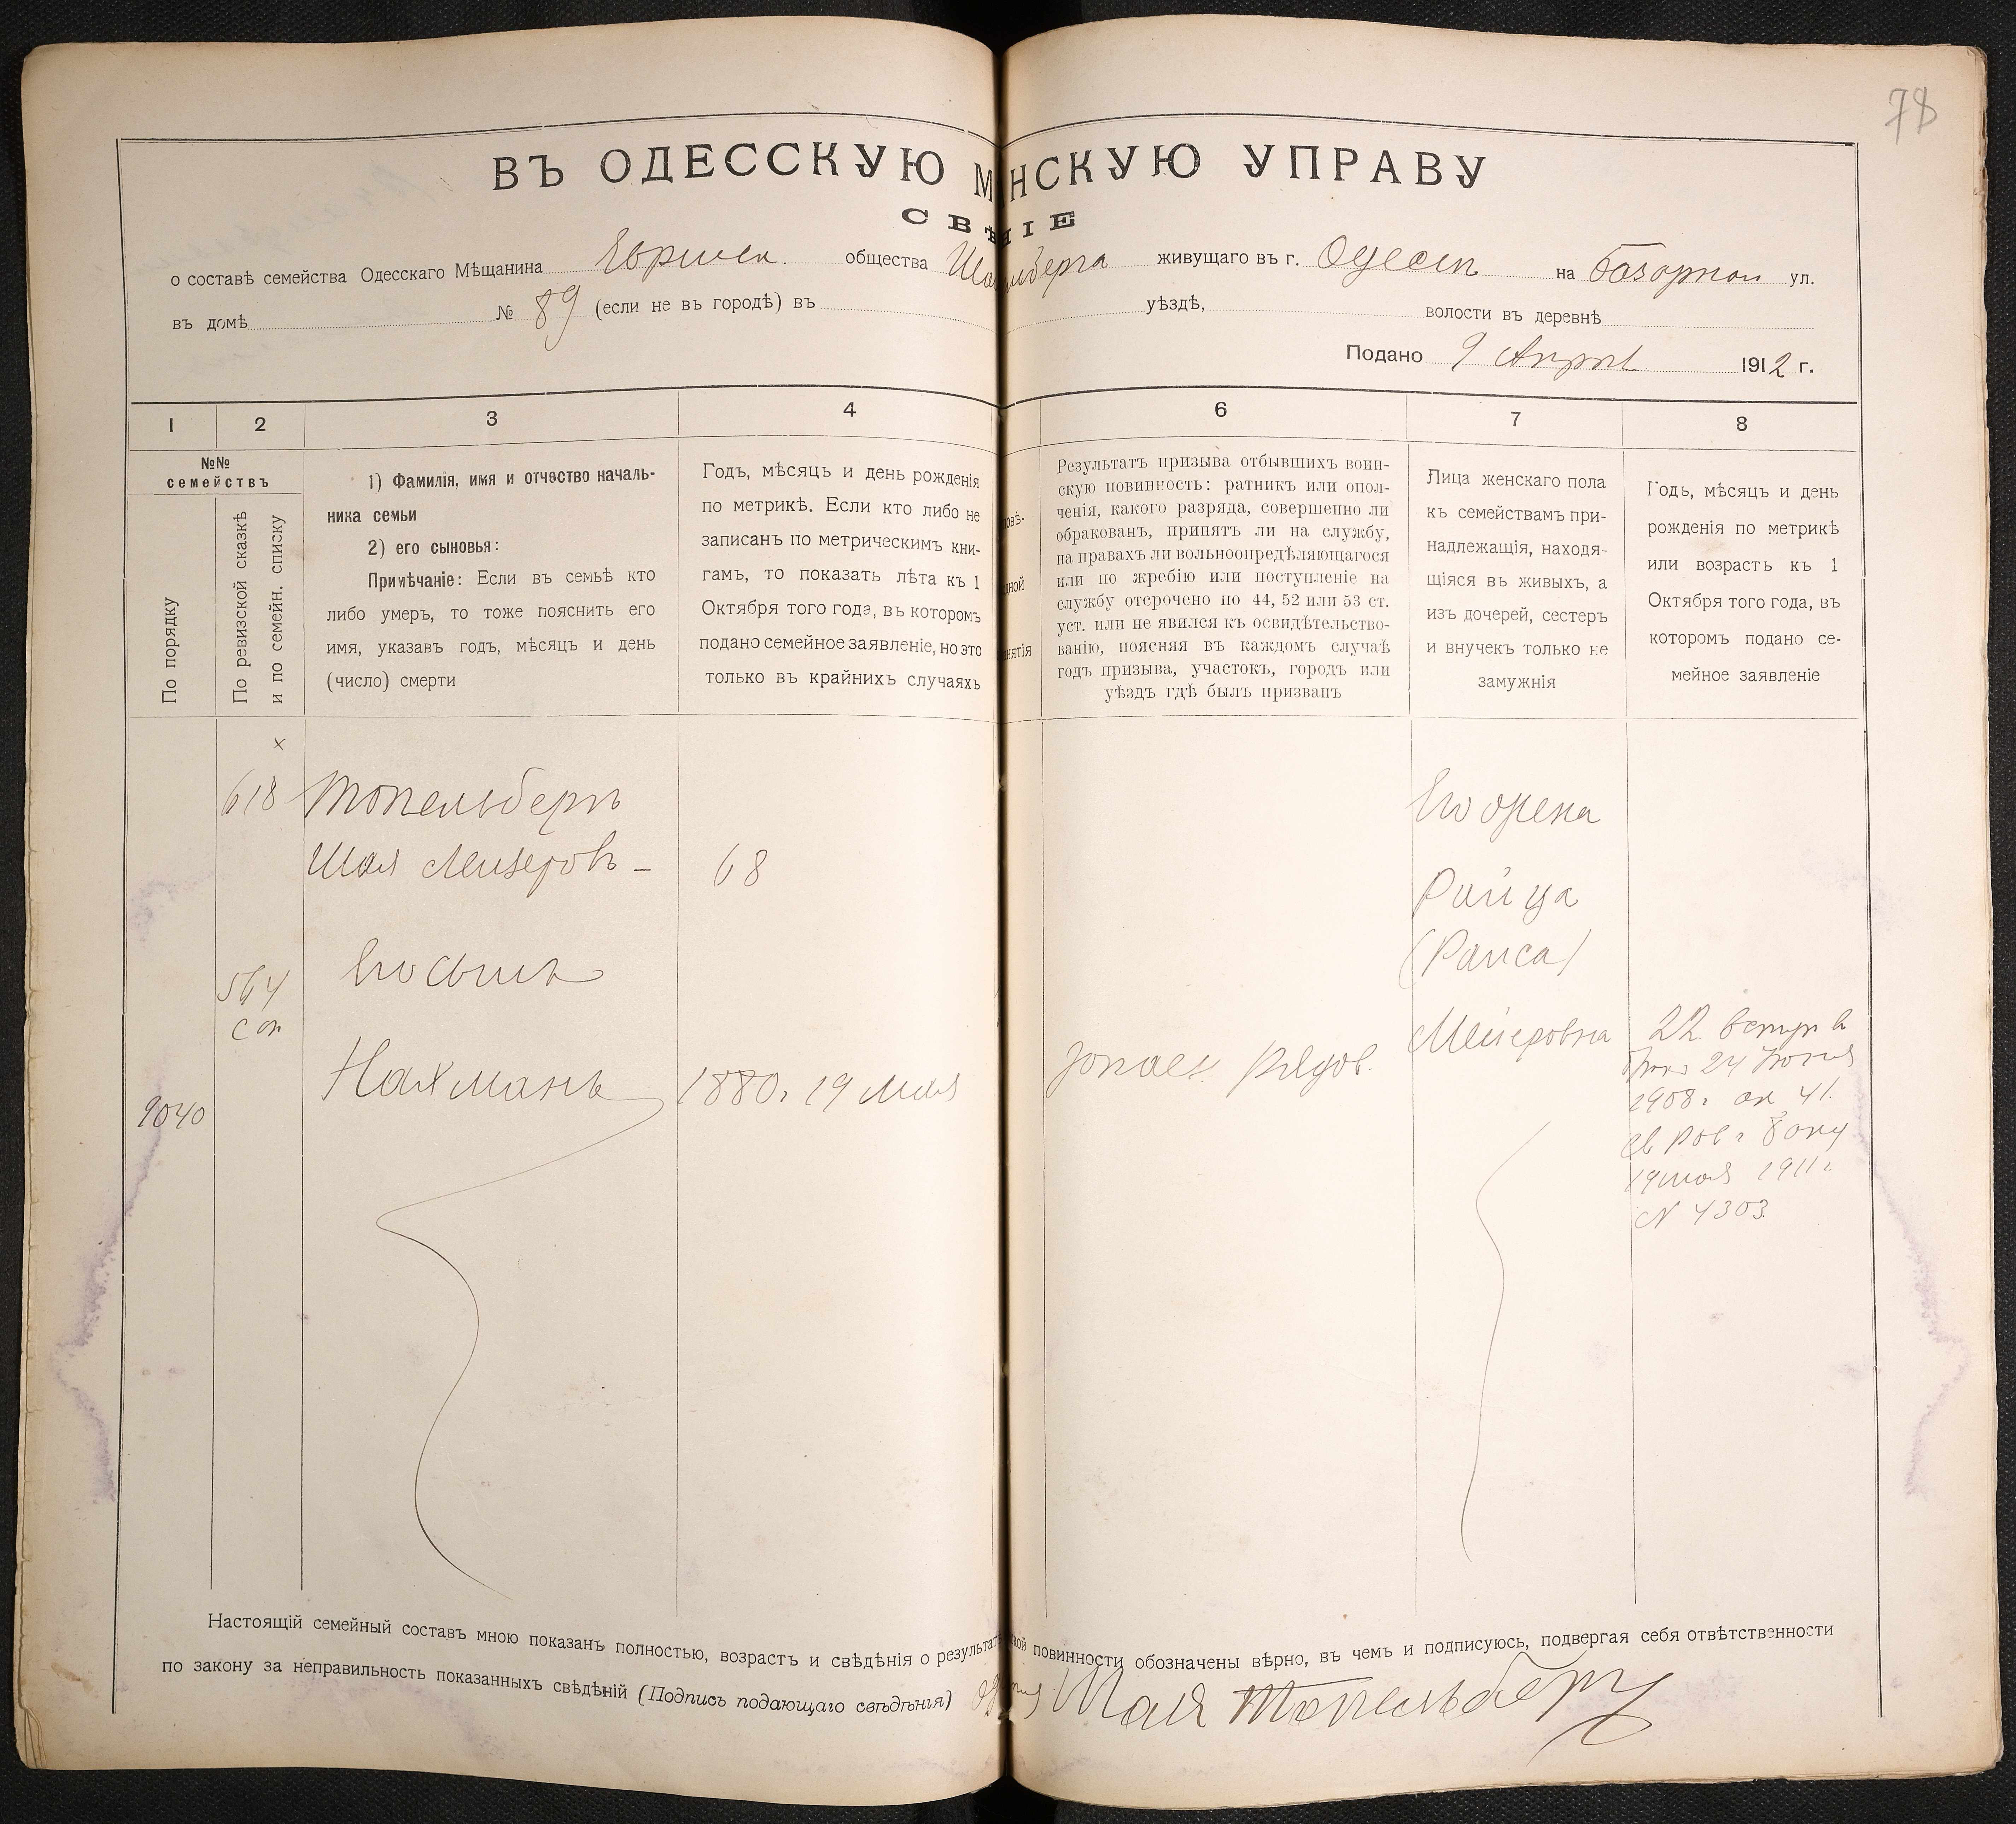 78
ВЪ ОДЕССКУЮ М НСКУЮ УПРАВУ
СВѢ НІЕ
о составѣ семейства Одесскаго Мѣщанина общества живущаго въ г. Одессѣ на Базарной ул.
въ домѣ № 89 (если не въ городѣ) въ уѣздѣ, волости въ деревнѣ
Подано 9 Апрѣля 1912 г.
1 2 3 4 6 7 8
№№
семействъ
По порядку
По ревизской сказкѣ
и по семейн. списку
1) Фамилія, имя и отчество началь-
ника семьи
2) его сыновья:
Примѣчаніе: Если въ семьѣ кто
либо умеръ, то тоже пояснить его
имя, указавъ годъ, мѣсяцъ и день
(число) смерти
Годъ, мѣсяцъ и день рожденія
по метрикѣ. Если кто либо не
записанъ по метрическимъ кни-
гамъ, то показать лѣта къ 1
Октября того года, въ которомъ
подано семейное заявленіе, но это
только въ крайнихъ случаяхъ
Результатъ призыва отбывшихъ воин-
скую повинность: ратникъ или опол-
ченія, какого разряда, совершенно ли
обракованъ, принятъ ли на службу,
на правахъ ли вольноопредѣляющагося
или по жребію или поступленіе на
службу отсрочено по 44, 52 или 53 ст.
уст. или не явился къ освидѣтельство-
ванію, поясняя въ каждомъ случаѣ
годъ призыва, участокъ, городъ или
уѣздъ гдѣ былъ призванъ
Лица женскаго пола
къ семействамъ при-
надлежащія, находя-
щіяся въ живыхъ, а
изъ дочерей, сестеръ
и внучекъ только не
замужнія
Годъ, мѣсяцъ и день
рожденія по метрикѣ
или возрастъ къ 1
Октября того года, въ
которомъ подано се-
мейное заявленіе
618 Топельбергъ
Шая Лейзеровъ - 68
Его сынъ
564
Нахманъ 1880г 19 мая
9040
запас рядов.
Его жена
Райца
(Раиса)
Мейеровна
22 вступ в
бракъ 24 Іюня
1908г
19 мая 1911г
N 4303
Настоящій семейный составъ мною показанъ полностью, возрастъ и свѣдѣнія о результат ской повинности обозначены вѣрно, въ чемъ и подписуюсь, подвергая себя отвѣтственности
по закону за неправильность показанныхъ свѣдѣній (Подпись подающаго свѣдѣнія) Шая Топельбергъ